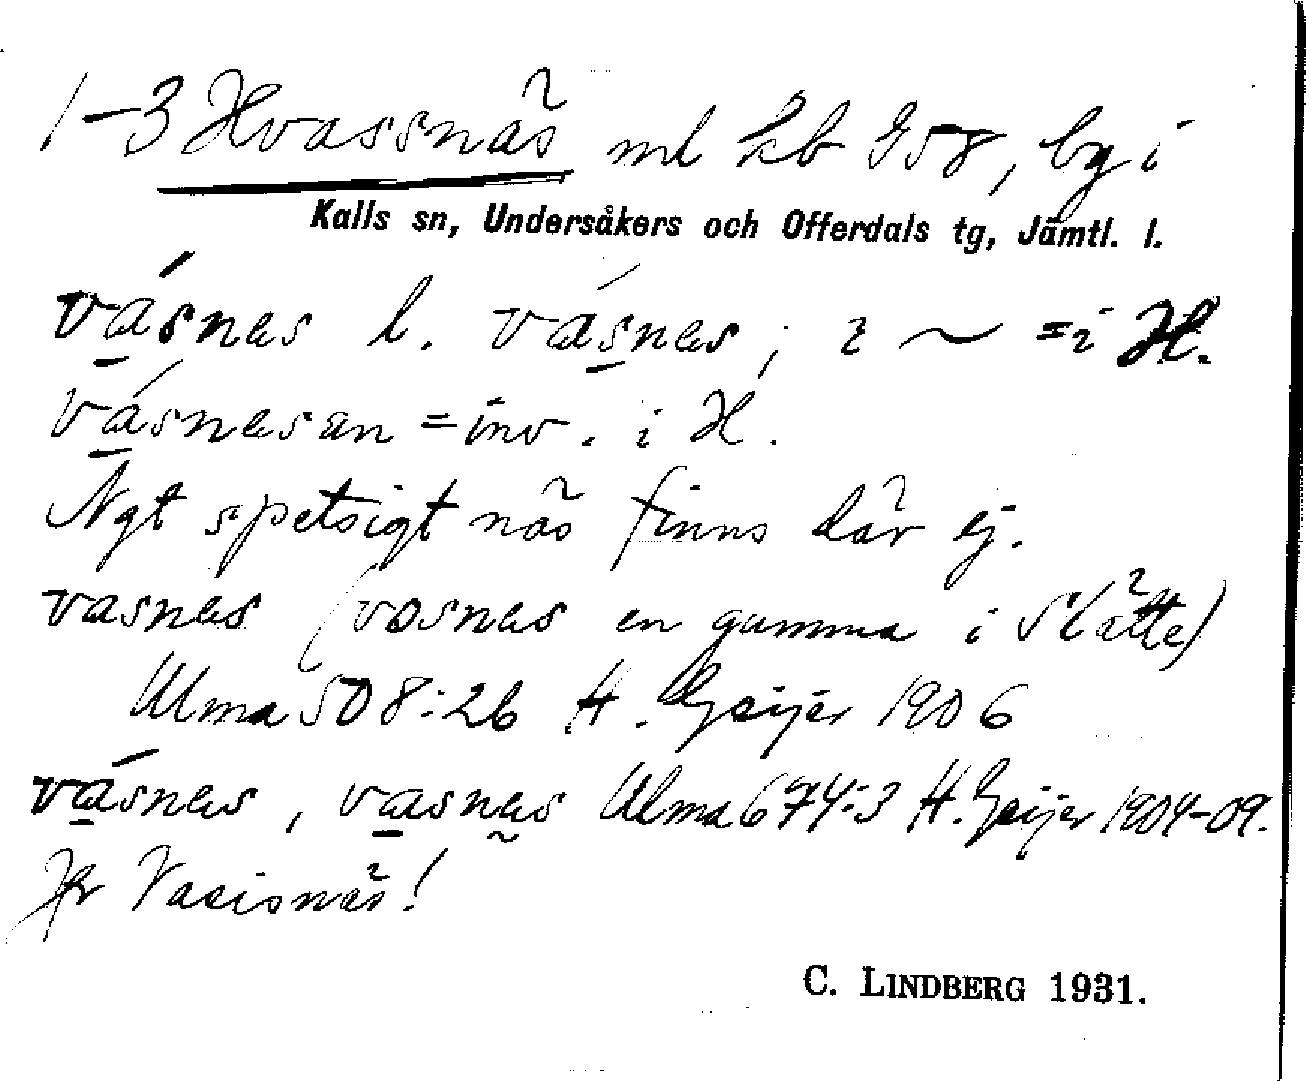 1-3 Hvassnäs ml kb 958, by i
Kalls sn, Undersåkers och Offerdals tg, Jämtl. l.
vásnas l. vásnas; i ~ = i H.
vásnasan = inv. i H.
Ngt spetsigt näs finns där ej.
vasnas (vosnas en gumma i Slätte)
Ulma 508:26 H. Geijer 1906
vásnas, vasnas Ulma 674:3 H. Geijer 1904-09.
Jfr Vasisnäs!
C. LINDBERG 1931.